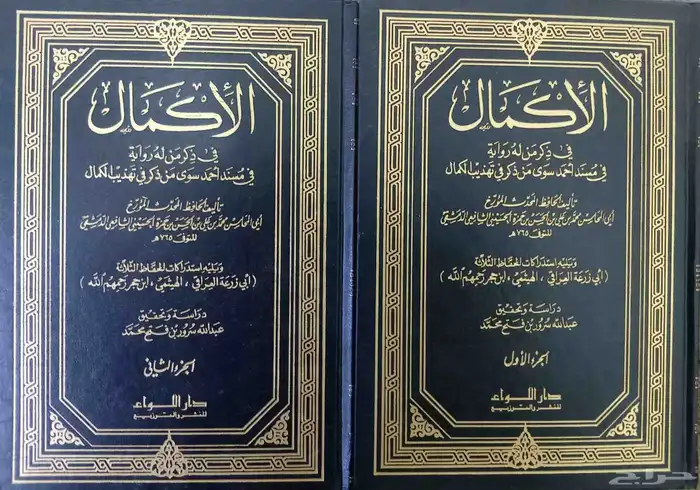 الإكمال
في ذكر من له رواية
في مسند أحمد سوى من ذكر في تهذيب الكمال
تأليف الحافظ المحدث المؤرخ
أبي المحاسن محمد بن علي بن الحسن بن حمزة الحسيني الشافعي الدمشقي
المتوفى ٧٦٥ هـ
ويليه استدراكات الحفاظ الثلاثة
(أبي زرعة العراقي ، الهيثمي ، ابن حجر رحمهم الله)
دراسة وتحقيق
عبدالله سرور بن فتح محمد
الجزء الأول
دار اللواء
للنشر والتوزيع
الإكمال
في ذكر من له رواية
في مسند أحمد سوى من ذكر في تهذيب الكمال
تأليف الحافظ المحدث المؤرخ
أبي المحاسن محمد بن علي بن الحسن بن حمزة الحسيني الشافعي الدمشقي
المتوفى ٧٦٥ هـ
ويليه استدراكات الحفاظ الثلاثة
(أبي زرعة العراقي ، الهيثمي ، ابن حجر رحمهم الله)
دراسة وتحقيق
عبدالله سرور بن فتح محمد
الجزء الثاني
دار اللواء
للنشر والتوزيع
حراج